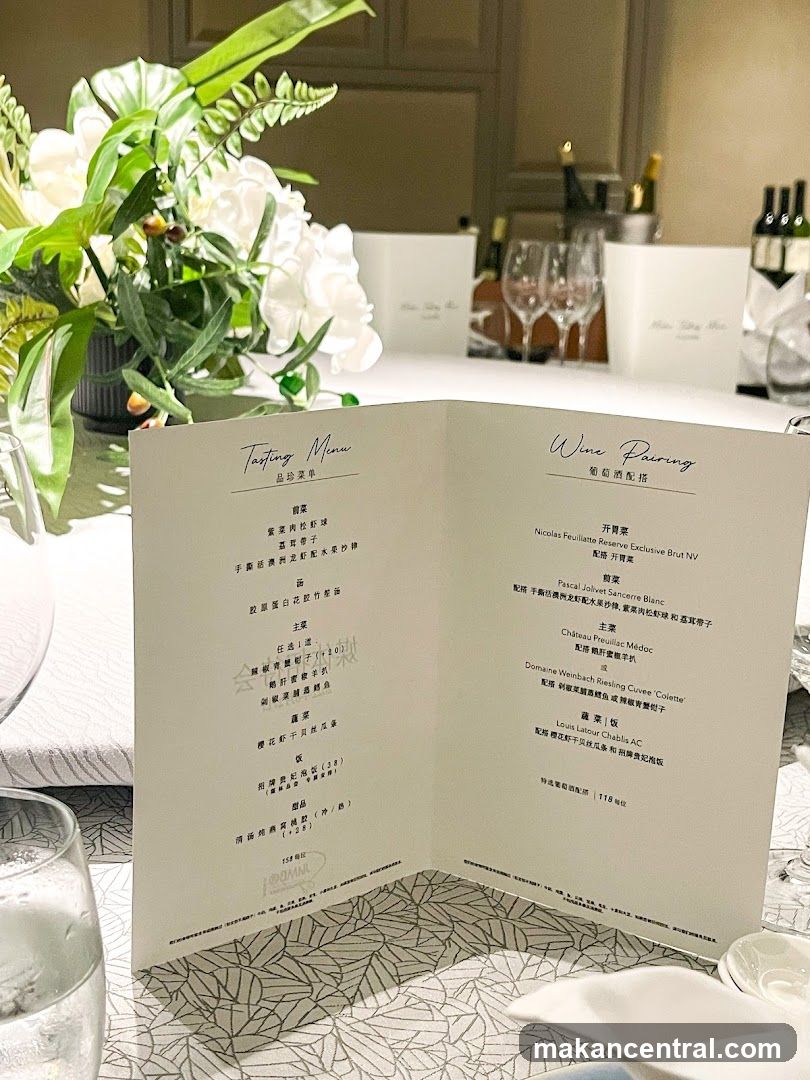 Tasting Menu
品珍菜单
前菜
紫菜肉松虾球
荔茸带子
手撕活澳洲龙虾配水果沙律
汤
胶原蛋白花胶竹笙汤
主菜
任选1道:
辣椒青蟹钳子(+20)
鹅肝蜜椒羊扒
剁椒菜脯蒸鳕鱼
蔬菜
樱花虾干贝丝瓜条
饭
招牌贵妃泡饭(38)
甜品
清汤炖燕窝桃胶(冷/热)
(+28)
158 每位
JUMBO
媒体招待会
Wine Pairing
葡萄酒配搭
开胃菜
Nicolas Feuillatte Reserve Exclusive Brut NV
配搭 开胃菜
前菜
Pascal Jolivet Sancerre Blanc
配搭 手撕活澳洲龙虾配水果沙律, 紫菜肉松虾球 和 荔茸带子
主菜
Château Preuillac Médoc
配搭 鹅肝蜜椒羊扒
或
Domaine Weinbach Riesling Cuvee 'Colette'
配搭 剁椒菜脯蒸鳕鱼 或 辣椒青蟹钳子
蔬菜 | 饭
Louis Latour Chablis AC
配搭 樱花虾干贝丝瓜条 和 招牌贵妃泡饭
特选葡萄酒配搭 | 118 每位
makancentral.com